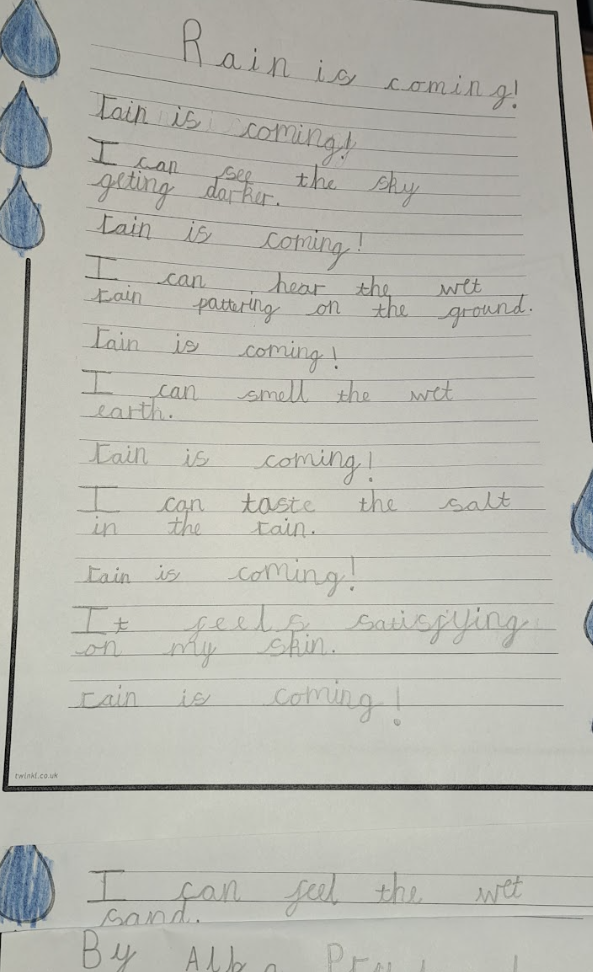 Rain is coming!
rain is coming!
I can see the sky
geting darker.
rain is coming!
I can hear the wet
rain pattering on the ground.
rain is coming!
I can smell the wet
earth.
rain is coming!
I can taste the salt
in the rain.
rain is coming!
It feels satisfying
on my skin.
rain is coming!
twinkl.co.uk
I can feel the wet
sand.
By